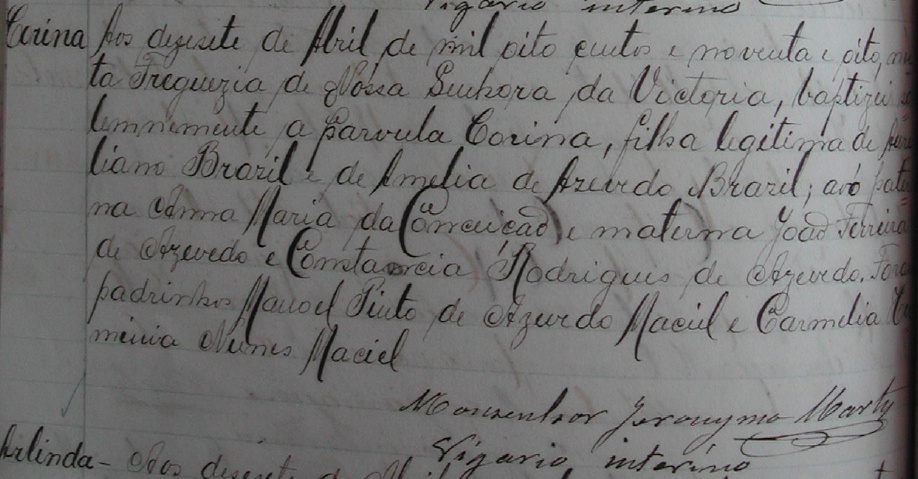 Vigario interino
Corina Aos dezesete de Abril de mil oito centos e noventa e oito, nes
ta Freguezia de Nossa Senhora da Victoria, baptizei so
lemnemente a parvula Corina, filha legitima de Aure
liano Brazil e de Amelia de Azevedo Brazil; avó pater
na Anna Maria da Conceição e materna João Ferreira
de Azevedo e Constancia Rodrigues de Azevedo. Forão
padrinhos Manoel Pinto de Azevedo Maciel e Carmelia
Nunes Maciel
Monsenhor Jeronymo Marty
Vigario interino
Arlinda - Aos desesete de